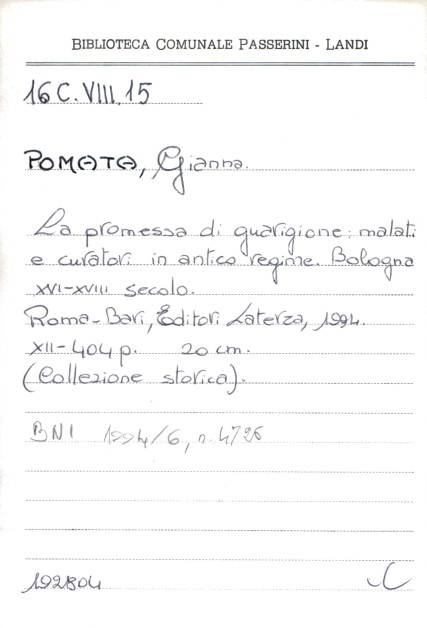 BIBLIOTECA COMUNALE PASSERINI - LANDI
16 C. VIII. 15
POMATA, Gianna.
La promessa di guarigione: malati
e curatori in antico regime. Bologna
XVI-XVIII secolo.
Roma-Bari, Editori Laterza, 1994.
XII-404 p. 20 cm.
(Collezione storica).
BNI 1994/6, n. 4726
192804